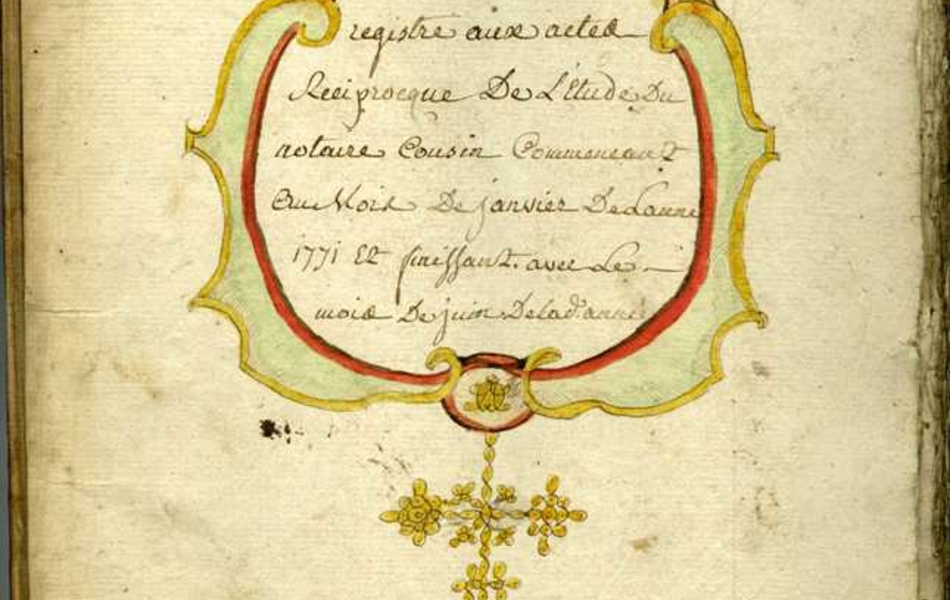 registre aux actes
Reciprocque De L'Etude Du
notaire Cousin Commancant
Au Mois De janvier De Lanne
1771 Et finissant avec Le
mois De juin De lad. anné